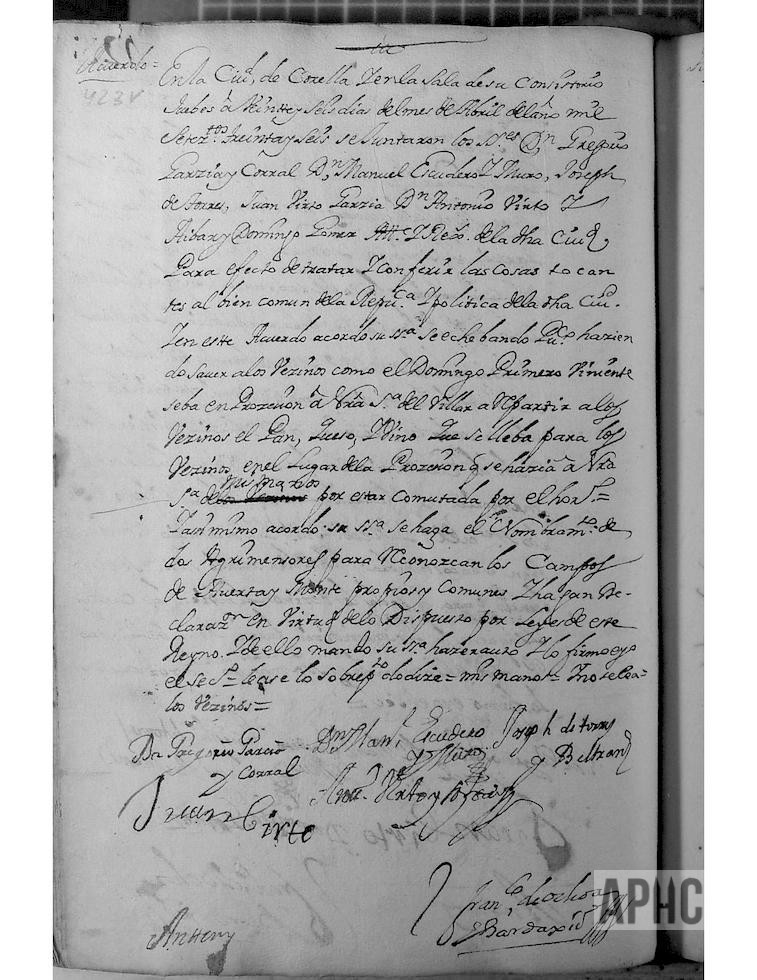 Acuerdo =
423v
En la Ciud. de Corella Y en la Sala de su Consistorio
Juebes â Veintte y seis dias del mes de Abril del año mil
Setezttos. treinta y seis se Juntaron los Ss.res Dn. Gregorio
Garzia y Corral Dn. Manuel Escudero Y Muro, Joseph
de torres, Juan Virto Garzia Dn Antonio Virto Y
Aibar y Domingo Gomez Att.s Y Rexs. de la dha Ciud.
Para efecto de tratar Y conferir las Cosas tocan
tes al bien comun de la Repu.ca Y politica de la dha Ciud.
Y en este Acuerdo acordo su ssa. se eche bando Puco. hazien
do saver a los Vezinos como el Domingo Primero Viniente
se ba en Prozesion â Nra Sa. del Villar a Repartir a los
Vezinos el Pan, Queso, Y Vino Que se lleba para los
Vezinos, en el Lugar de la Prozesion q se hazia â Nra
mismanos
Sa. de los Vezinos por estar comutada por el hor. S.=
Y assimismo acordo su ssa. se haga el Nombramto. de
dos Agrimensores para Reconozcan los Campos
de Huerta y Monte propios y Comunes Y hagan De-
clarazon. en Virtud de lo Dispuesto por Leyes de este
Reyno. Y de ello mando su ssa. hazer auto Y lo firmo e yo
el ses.o = lease lo sobrepto. do dize = mismanos = Y no se lea =
los Vezinos =
Dn Gregorio Garcia
y Corral
Dn Manl. Escudero
y Muro
Joseph de torres
y Beltran
Juan Virto
Antto. Virto y
Franco. de
Bardaxi
Antt.
APHC